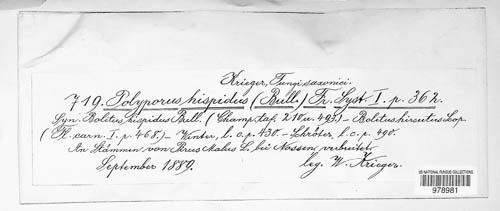 Krieger, Fungi saxonici.
719. Polyporus hispidus (Bull.) Fr. Syst. I. p. 362.
Syn. Boletus hispidus Bull. (Champ. taf. 210 u. 493) – Boletus hirsutus Scop.
(Fl. carn. I. p. 468.) – Winter, l. c. p. 430. – Schröter, l. c. p. 490.
An Stämmen von Pirus Malus L. bei Nossen, verbreitet.
September 1889. leg. W. Krieger.
US NATIONAL FUNGUS COLLECTIONS
978981